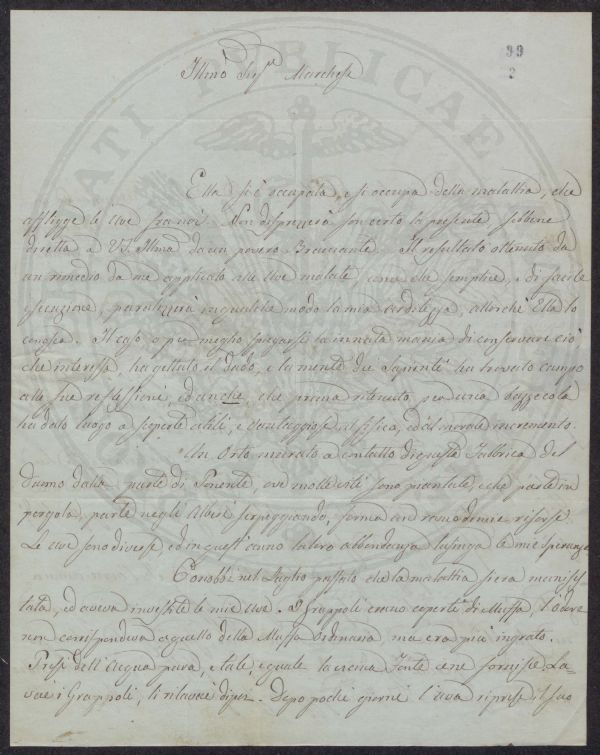 99
2
Illmo Sigr Marchese
Ella si è occupata, e si occupa della malattia, che
affligge le Uve fra noi. Non disprezzerà son certo la presente sebbene
diretta a VS. Illma da un povero Bracciante. Il resultato ottenuto da
un rimedio da me applicato alle Uve malate, come che semplice, e di facile
esecuzione, paralizzerà in qualche modo la mia arditezza, allorchè Ella lo
conosca. Il caso, o per meglio spiegarsi la innata mania di conservare ciò
che interessa ha gettato il dado, e la mente dei Sapienti ha trovato campo
alle sue reflessioni, ed anche, che prima ritenuto per una bazzecola
ha dato luogo a scoperte utili, e vantaggiose al fisica, ed al morale incremento.
Un Orto murato a contatto di queste Fabbrica del
Duomo dalla parte di Ponente, ove molte viti sono piantate, che parte in
pergola, parte negli Alberi serpeggiando, forma una
Le uve sono diverse, ed in quest'anno la loro abbondanza lusinga le mie speranze
Conobbi nel Luglio passato che la malattia si era manifes-
tata, ed aveva investite le mie uve. I grappoli erano coperti di Muffa, l'odore
non corrispondeva a quello della Muffa Ordinaria ma era più ingrato.
Presi dell'acqua pura, e tale, quale la vicina Fonte me fornisce La-
vai i Grappoli, li rilavai dipoi. Dopo pochi giorni l'uva riprese il suo